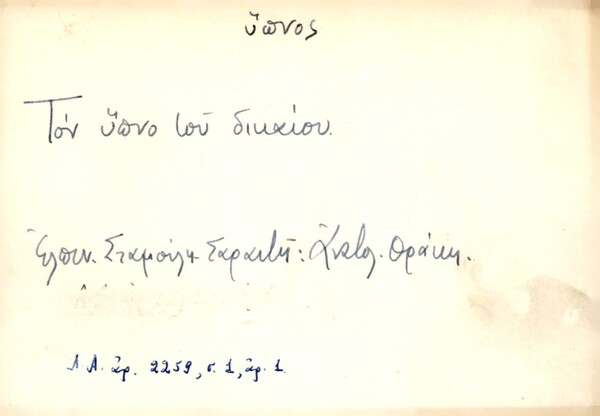 ὕπνος
Τόν ὕπνο τοῦ δικαίου.
Ἐλπιν. Σταμούλη Σαραντῆ: Ἀνατολ. Θράκη.
Λ.Α. ἀρ. 2259, σ. 1, ἀρ. 1.